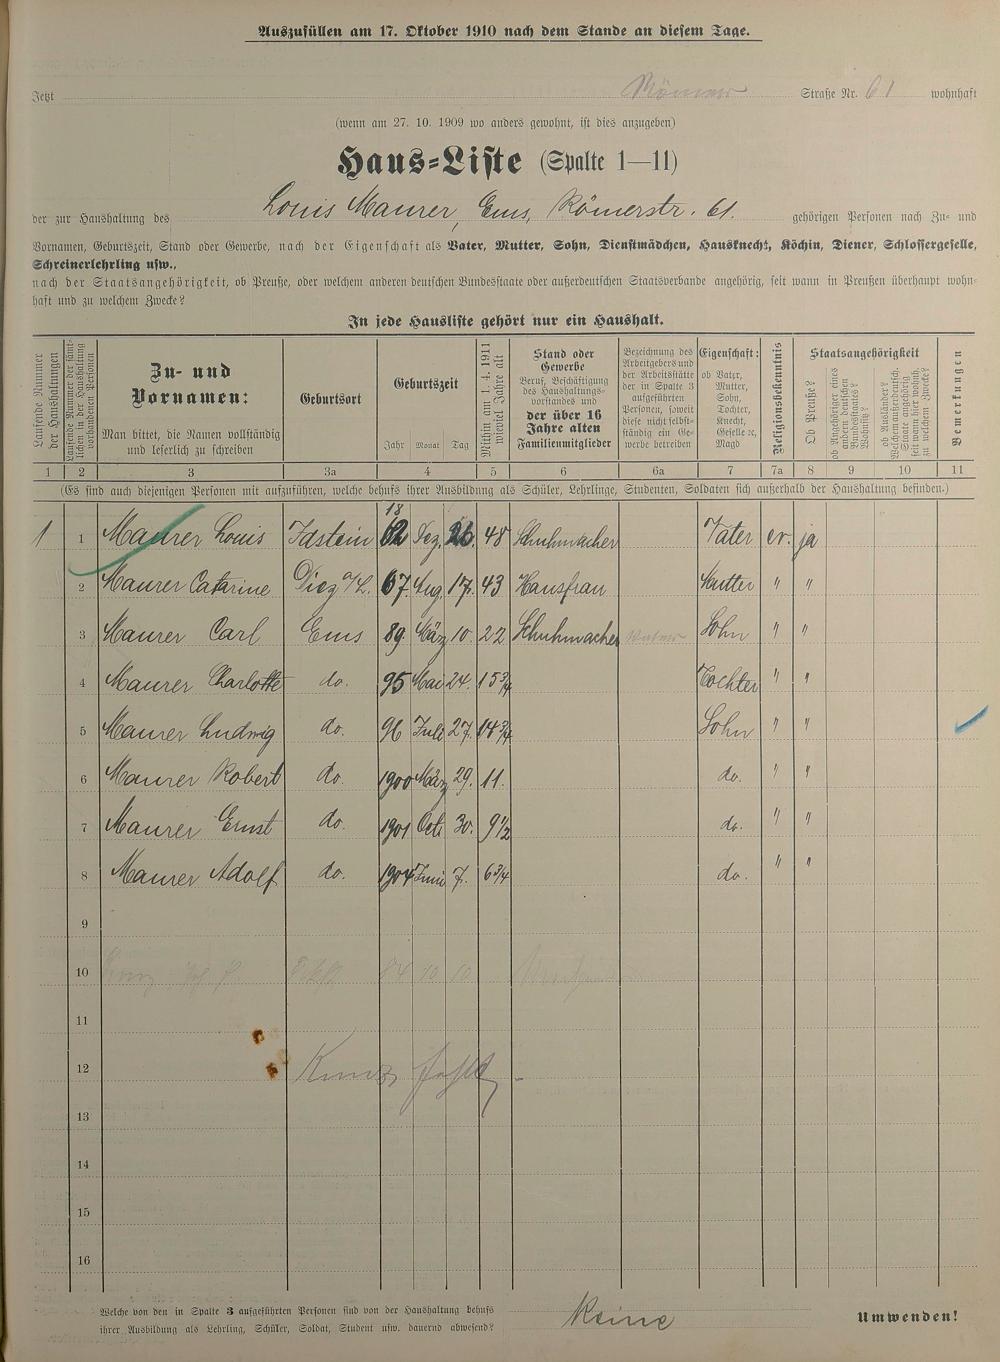 Auszufüllen am 17. Oktober 1910 nach dem Stande an diesem Tage.
Jetzt Römer Straße Nr. 61 wohnhaft
(wenn am 27. 10. 1909 wo anders gewohnt, ist dies anzugeben)
Haus-Liste (Spalte 1—11)
der zur Haushaltung des Louis Maurer, Ems, Römerstr. 61. gehörigen Personen nach Zu- und
Vornamen, Geburtszeit, Stand oder Gewerbe, nach der Eigenschaft als Vater, Mutter, Sohn, Dienstmädchen, Hausknecht, Köchin, Diener, Schlossergeselle,
Schreinerlehrling usw.,
nach der Staatsangehörigkeit, ob Preuße, oder welchem anderen deutschen Bundesstaate oder außerdeutschen Staatsverbande angehörig, seit wann in Preußen überhaupt wohn-
haft und zu welchem Zwecke?
In jede Hausliste gehört nur ein Haushalt.
Laufende Nummer der Haushaltungen
Laufende Nummer der sämtlichen in der Haushaltung vorhandenen Personen
Zu- und
Vornamen:
Man bittet, die Namen vollständig
und leserlich zu schreiben
Geburtsort
Geburtszeit
Jahr Monat Tag
Mithin am 1. 4. 1911 wieviel Jahre alt
Stand oder
Gewerbe
Beruf, Beschäftigung
des Haushaltungs-
vorstandes und
der über 16
Jahre alten
Familienmitglieder
Bezeichnung des
Arbeitgebers und
der Arbeitsstätte
der in Spalte 3
aufgeführten
Personen, soweit
diese nicht selbst-
ständig ein Ge-
werbe betreiben
Eigenschaft:
ob Vater,
Mutter,
Sohn,
Tochter,
Knecht,
Geselle ꝛc,
Magd
Religionsbekenntnis
Staatsangehörigkeit
Ob Preuße?
ob Angehöriger eines andern deutschen Bundesstaates? Wohnsitz?
ob Ausländer? Welchem außerdeutsch. Staate angehörig seit wann hier wohnh. zu welchem Zwecke?
Bemerkungen
1 2 3 3a 4 5 6 6a 7 7a 8 9 10 11
(Es sind auch diejenigen Personen mit aufzuführen, welche behufs ihrer Ausbildung als Schüler, Lehrlinge, Studenten, Soldaten sich außerhalb der Haushaltung befinden.)
18
1 1 Maurer Louis Idstein 62 Dez. 26. 48 Schuhmacher Vater ev. ja
2 Maurer Catarine Diez a/L. 67. Aug. 17. 43 Hausfrau Mutter " "
3 Maurer Carl Ems 89. März 10. 22 Schuhmacher Sohn " "
4 Maurer Charlotte do. 95 Mai 24. 15 3/4 Tochter " "
5 Maurer Ludwig do. 96 Juli 27. 14 3/4 Sohn " "
6 Maurer Robert do. 1900 März 29. 11. do. " "
7 Maurer Ernst do. 1901 Oct. 30. 9 1/2 do. " "
8 Maurer Adolf do. 1904 Juni 7. 6 3/4 do. " "
9
10
11
12
13
14
15
16
Welche von den in Spalte 3 aufgeführten Personen sind von der Haushaltung behufs
ihrer Ausbildung als Lehrling, Schüler, Soldat, Student usw. dauernd abwesend? Keine
Umwenden!